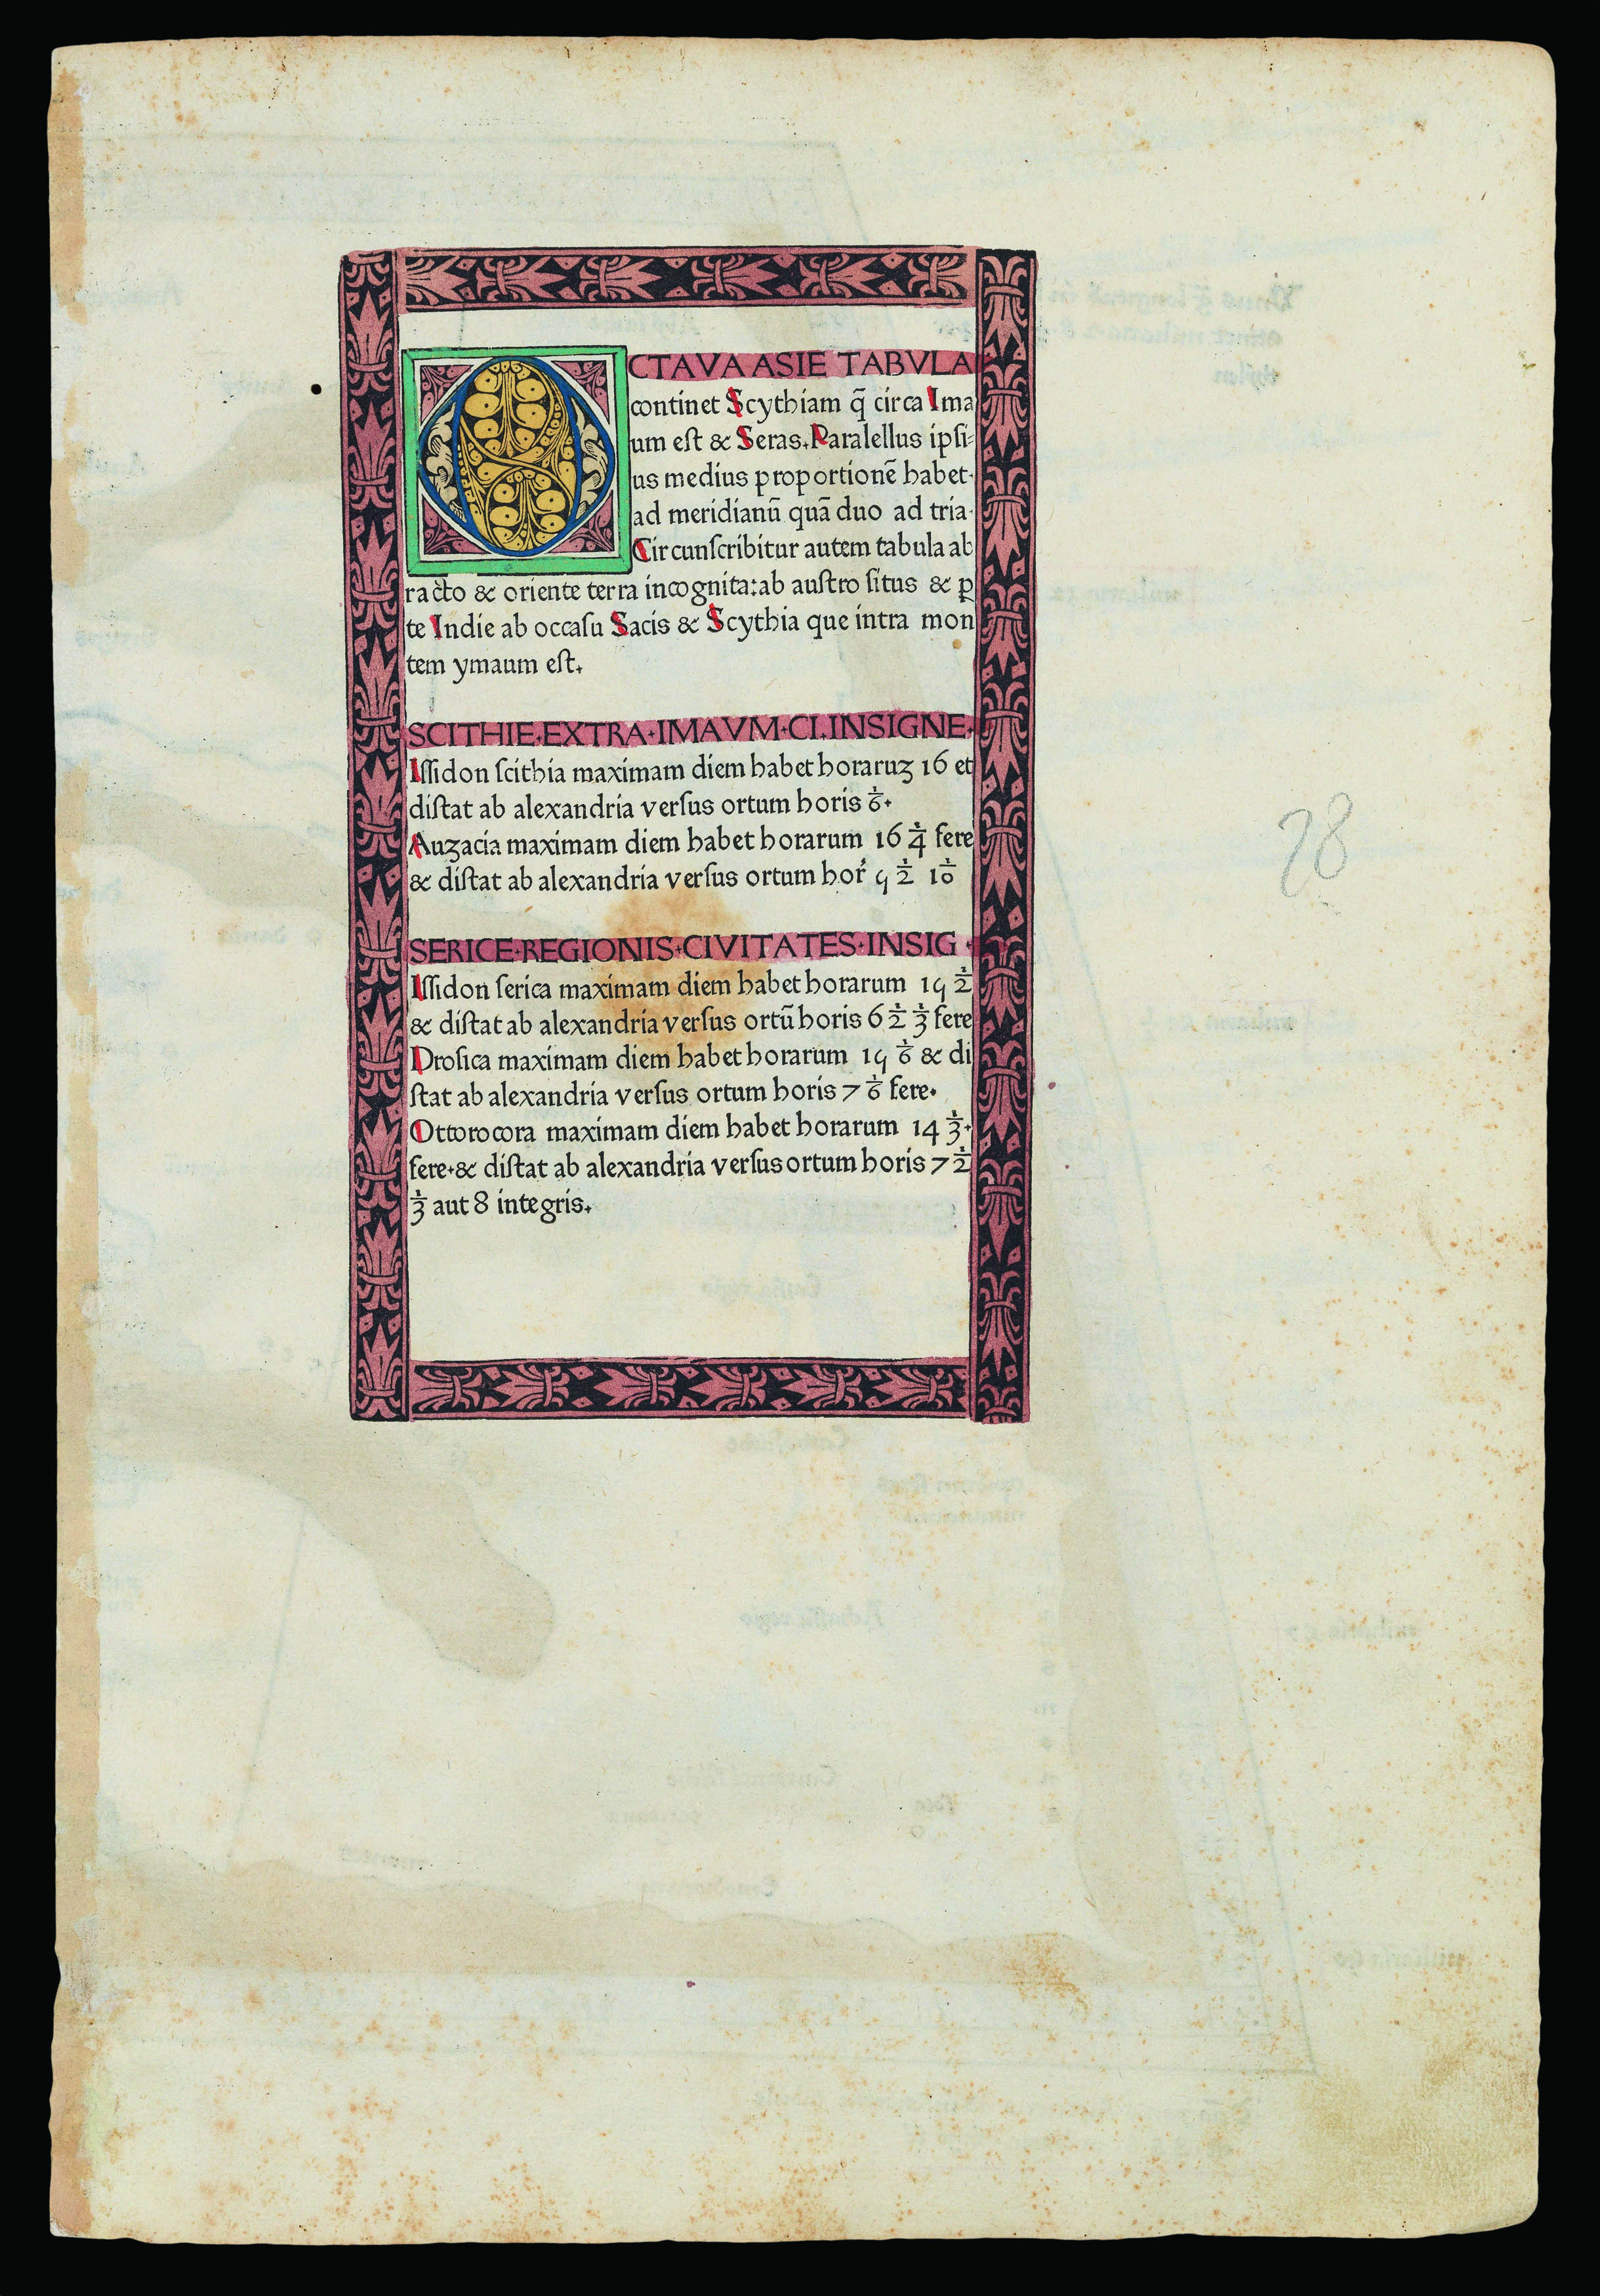 OCTAVA ASIE TABVLA
continet Scythiam q̃ circa Ima
um est & Seras. Paralellus ipsi=
us medius proportionẽ habet.
ad meridianũ quã duo ad tria.
Circunscribitur autem tabula ab
racto & oriente terra incognita: ab austro situs & ꝑ
te Indie ab occasu Sacis & Scythia que intra mon
tem ymaum est.
SCITHIE·EXTRA·IMAVM·CI·INSIGNE·
Issidon scithia maximam diem habet horaruꝫ 16 et
distat ab alexandria versus ortum horis 1/6.
Auzacia maximam diem habet horarum 16 1/4 fere
& distat ab alexandria versus ortum hor' 5 1/2 1/10
SERICE·REGIONIS·CIVITATES·INSIG·
Issidon serica maximam diem habet horarum 15 1/2
& distat ab alexandria versus ortũ horis 6 1/2 1/3 fere
Drosica maximam diem habet horarum 15 1/6 & di
stat ab alexandria versus ortum horis 7 1/6 fere.
Ottorocora maximam diem habet horarum 14 1/3.
fere. & distat ab alexandria versus ortum horis 7 1/2
1/3 aut 8 integris.
28